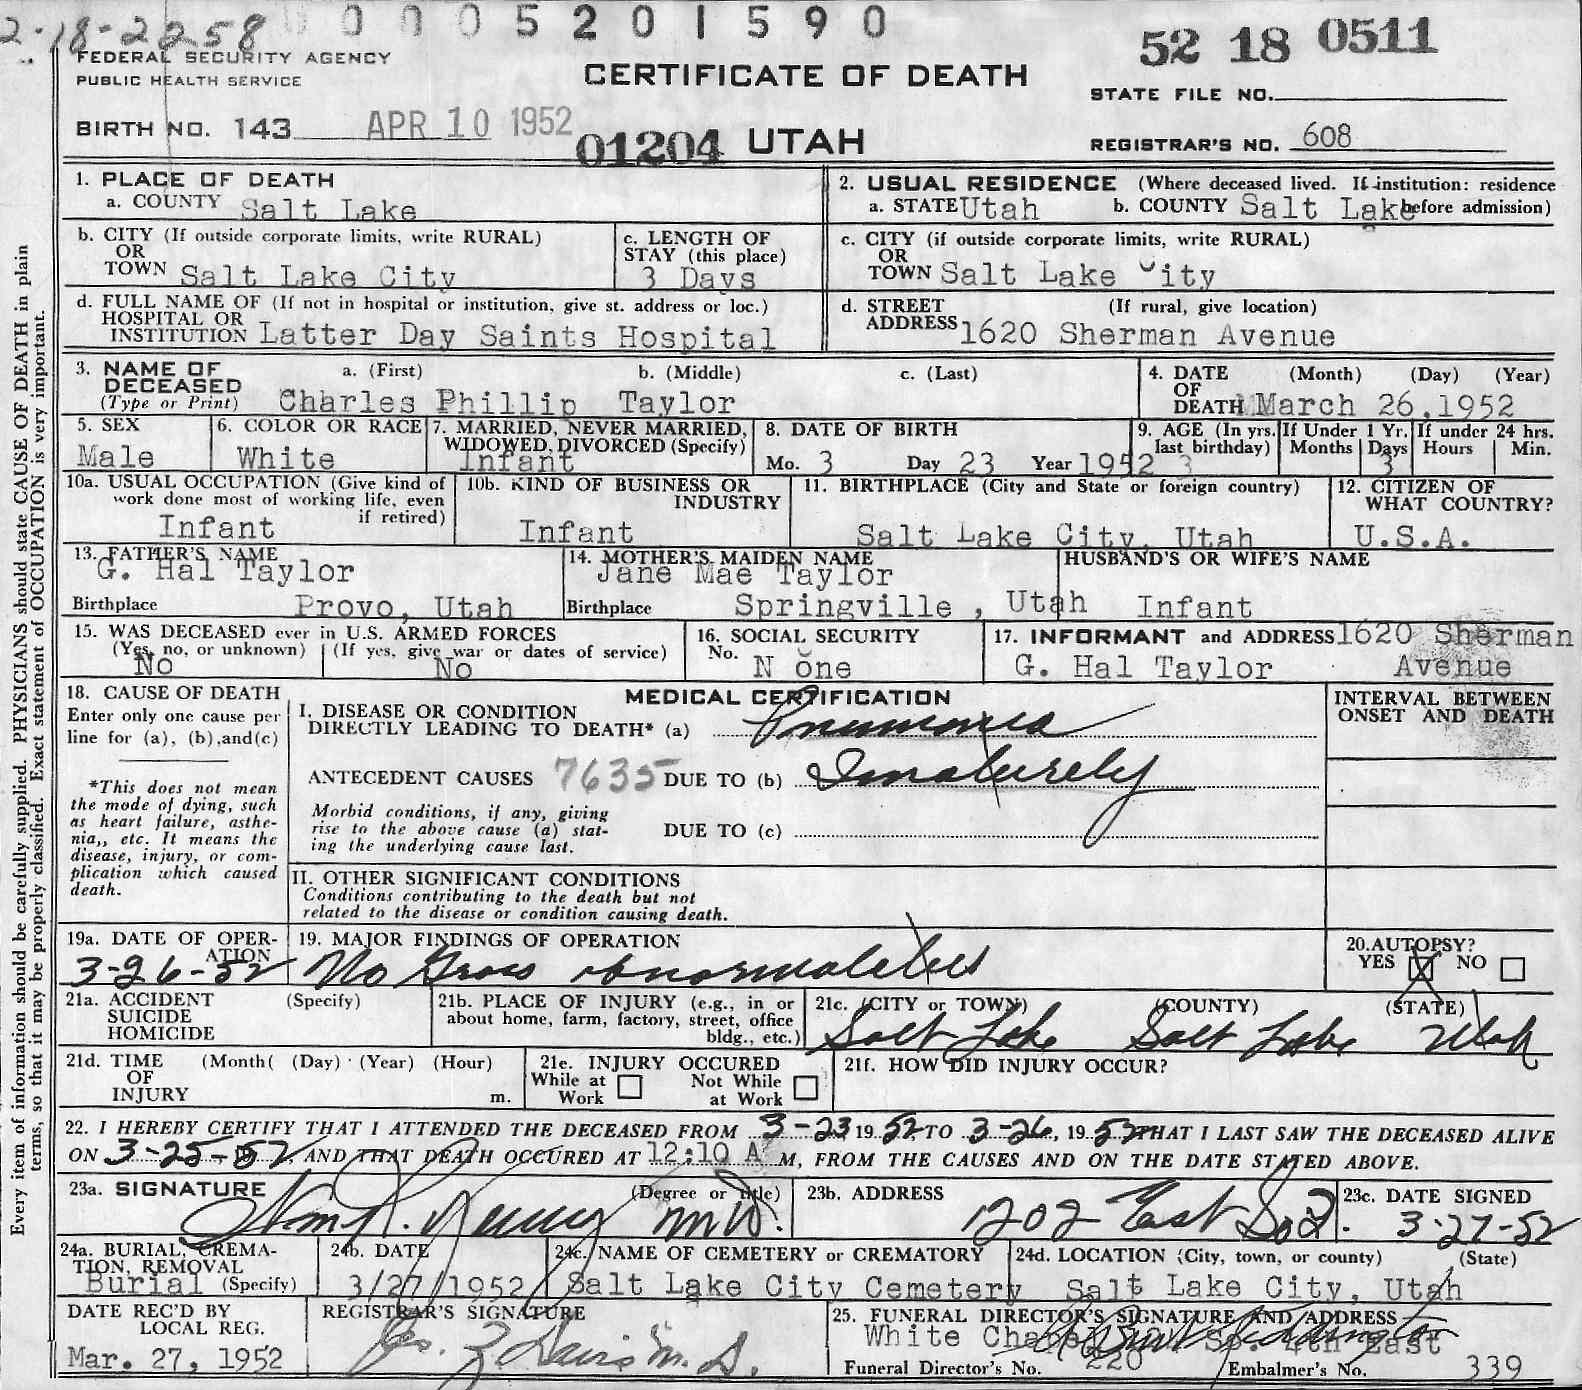 2-18-2258
0005201590
52 18 0511
FEDERAL SECURITY AGENCY
PUBLIC HEALTH SERVICE
CERTIFICATE OF DEATH
STATE FILE NO.
BIRTH NO. 143 APR 10 1952
01204 UTAH
REGISTRAR'S NO. 608
1. PLACE OF DEATH
a. COUNTY Salt Lake
2. USUAL RESIDENCE (Where deceased lived. If institution: residence before admission)
a. STATE Utah b. COUNTY Salt Lake
b. CITY (If outside corporate limits, write RURAL)
OR
TOWN Salt Lake City
c. LENGTH OF
STAY (this place)
3 Days
c. CITY (if outside corporate limits, write RURAL)
OR
TOWN Salt Lake City
d. FULL NAME OF (If not in hospital or institution, give st. address or loc.)
HOSPITAL OR
INSTITUTION Latter Day Saints Hospital
d. STREET (If rural, give location)
ADDRESS 1620 Sherman Avenue
3. NAME OF a. (First) b. (Middle) c. (Last)
DECEASED
(Type or Print) Charles Phillip Taylor
4. DATE (Month) (Day) (Year)
OF
DEATH March 26,1952
5. SEX
Male
6. COLOR OR RACE
White
7. MARRIED, NEVER MARRIED,
WIDOWED, DIVORCED (Specify)
Infant
8. DATE OF BIRTH
Mo. 3 Day 23 Year 1952
9. AGE (In yrs. last birthday) 3
If Under 1 Yr.
Months Days
3
If under 24 hrs.
Hours Min.
10a. USUAL OCCUPATION (Give kind of
work done most of working life, even
if retired)
Infant
10b. KIND OF BUSINESS OR
INDUSTRY
Infant
11. BIRTHPLACE (City and State or foreign country)
Salt Lake City, Utah
12. CITIZEN OF
WHAT COUNTRY?
U.S.A.
13. FATHER'S NAME
G. Hal Taylor
Birthplace Provo, Utah
14. MOTHER'S MAIDEN NAME
Jane Mae Taylor
Birthplace Springville , Utah
HUSBAND'S OR WIFE'S NAME
Infant
15. WAS DECEASED ever in U.S. ARMED FORCES
(Yes, no, or unknown) (If yes, give war or dates of service)
No No
16. SOCIAL SECURITY
No. N one
17. INFORMANT and ADDRESS 1620 Sherman
G. Hal Taylor Avenue
18. CAUSE OF DEATH
Enter only one cause per
line for (a), (b),and(c)
*This does not mean
the mode of dying, such
as heart failure, asthe-
nia,, etc. It means the
disease, injury, or com-
plication which caused
death.
MEDICAL CERTIFICATION
I. DISEASE OR CONDITION
DIRECTLY LEADING TO DEATH* (a) Pneumonia
ANTECEDENT CAUSES 7635 DUE TO (b)
Morbid conditions, if any, giving
rise to the above cause (a) stat-
ing the underlying cause last.
DUE TO (c)
INTERVAL BETWEEN
ONSET AND DEATH
II. OTHER SIGNIFICANT CONDITIONS
Conditions contributing to the death but not
related to the disease or condition causing death.
19a. DATE OF OPER-
ATION
3-26-52
19. MAJOR FINDINGS OF OPERATION
No Gross abnormalities
20. AUTOPSY?
YES X NO
21a. ACCIDENT (Specify)
SUICIDE
HOMICIDE
21b. PLACE OF INJURY (e.g., in or
about home, farm, factory, street, office
bldg., etc.)
21c. (CITY or TOWN) (COUNTY) (STATE)
Salt Lake Salt Lake Utah
21d. TIME (Month( (Day) (Year) (Hour)
OF
INJURY m.
21e. INJURY OCCURED
While at Work Not While at Work
21f. HOW DID INJURY OCCUR?
22. I HEREBY CERTIFY THAT I ATTENDED THE DECEASED FROM 3-23, 1952, TO 3-26, 1952 THAT I LAST SAW THE DECEASED ALIVE
ON 3-25-52, AND THAT DEATH OCCURED AT 12:10 A M, FROM THE CAUSES AND ON THE DATE STATED ABOVE.
23a. SIGNATURE (Degree or title)
M.D.
23b. ADDRESS
1202 East So 2.
23c. DATE SIGNED
3-27-52
24a. BURIAL, CREMA-
TION, REMOVAL
Burial (Specify)
24b. DATE
3/27/1952
24c. NAME OF CEMETERY or CREMATORY
Salt Lake City Cemetery
24d. LOCATION (City, town, or county) (State)
Salt Lake City, Utah
DATE REC'D BY
LOCAL REG.
Mar. 27, 1952
REGISTRAR'S SIGNATURE
M.D.
25. FUNERAL DIRECTOR'S SIGNATURE AND ADDRESS
White Chapel So. 4th East
Funeral Director's No. 220 Embalmer's No. 339
Every item of information should be carefully supplied. PHYSICIANS should state CAUSE OF DEATH in plain
terms, so that it may be properly classified. Exact statement of OCCUPATION is very important.